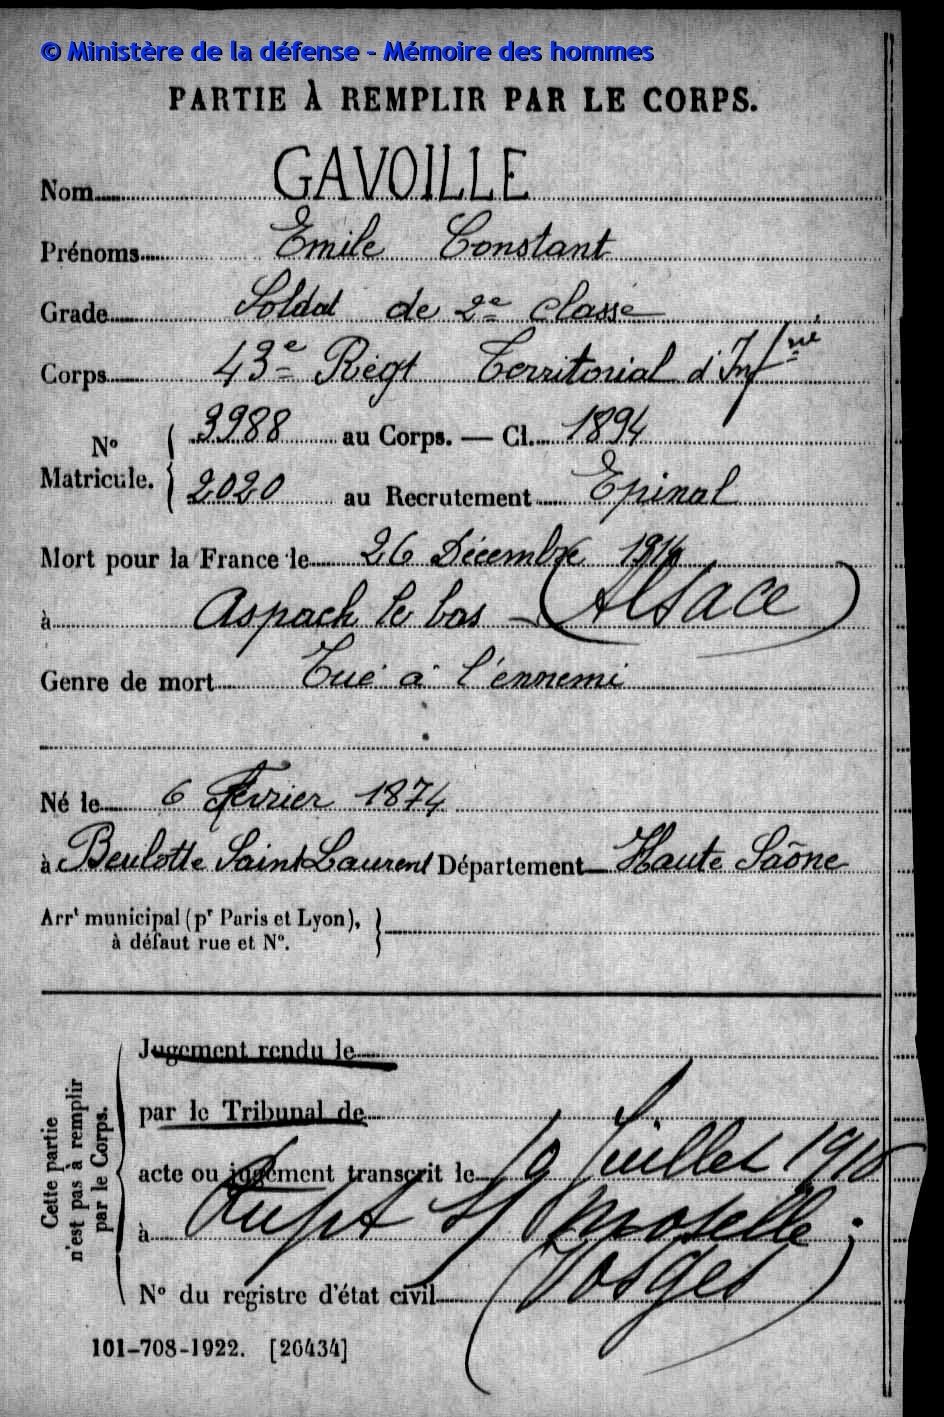 © Ministère de la défense - Mémoire des hommes
PARTIE À REMPLIR PAR LE CORPS.
Nom GAVOILLE
Prénoms Emile Constant
Grade Soldat de 2e classe
Corps 43e Régt Territorial d'Infrie
N° Matricule. { 3988 au Corps. — Cl. 1894
2020 au Recrutement Epinal
Mort pour la France le 26 Décembre 1914
à Aspach le bas (Alsace)
Genre de mort Tué à l'ennemi
Né le 6 Février 1874
à Beulotte Saint Laurent Département Haute Saône
Arrt municipal (pr Paris et Lyon),
à défaut rue et N°.
Cette partie n'est pas à remplir par le Corps.
Jugement rendu le
par le Tribunal de
acte ou jugement transcrit le Juillet
à Rupt s/ Moselle
(Vosges)
N° du registre d'état civil
101-708-1922. [26434]